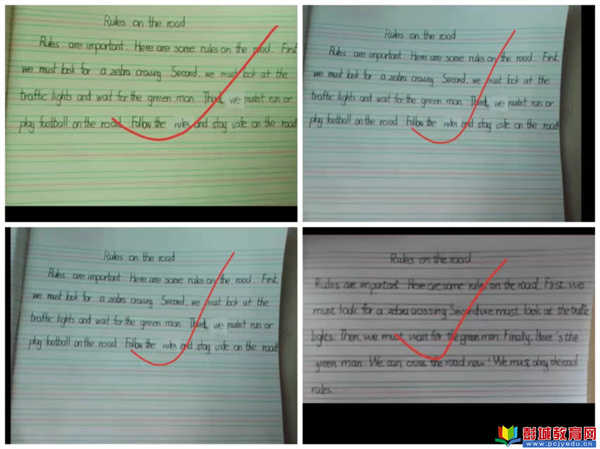 Rules on the road
Rules are important. Here are some rules on the road. First,
we must look for a zebra crossing. Second, we must look at the
traffic lights and wait for the green man. Third, we mustn't run or
play football on the road. Follow the rules and stay safe on the road
Rules on the road
Rules are important. Here are some rules on the road. First,
we must look for a zebra crossing. Second, we must look at the
traffic lights and wait for the green man. Third, we mustn't run or
play football on the road. Follow the rules and stay safe on the road
Rules on the road
Rules are important. Here are some rules on the road. First,
we must look for a zebra crossing. Second, we must look at the
traffic lights and wait for the green man. Third, we mustn't run or
play football on the road. Follow the rules and stay safe on the road
Rules on the road
Rules are important. Here are some rules on the road. First, we
must look for a zebra crossing. Second, we must look at the traffic
lights. Then, we must wait for the green man. Finally, Here's the
green man. We can cross the road now! We must obey the road
rules.
彭城教育网
www.pcjyedu.com